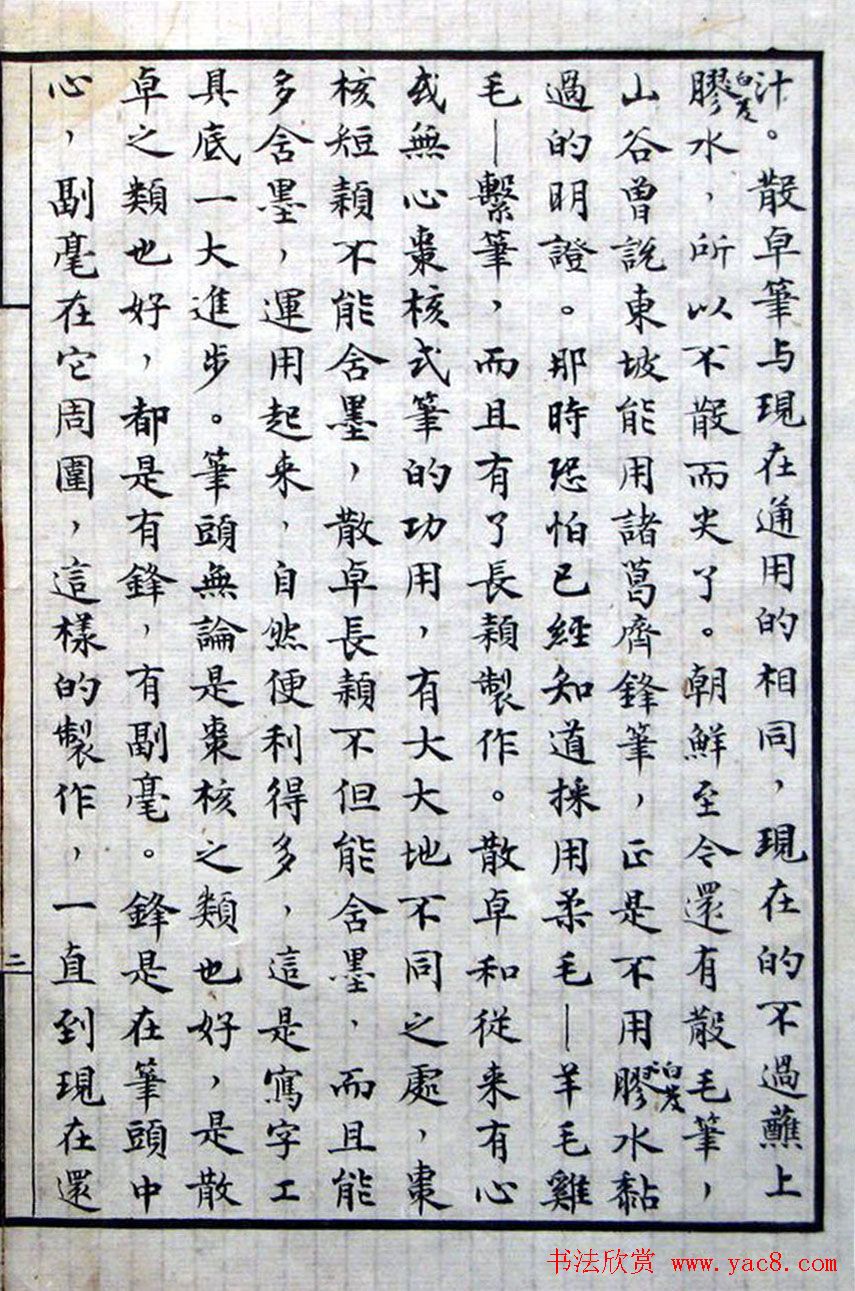 汁。散卓筆与現在通用的相同，現在的不過蘸上
膠白芨水，所以不散而尖了。朝鮮至今還有散毛筆，
山谷曾說東坡能用諸葛齊鋒筆，正是不用膠和白芨水黏
過的明證。那時恐怕已經知道採用柔毛—羊毛雞
毛—繫筆，而且有了長穎製作。散卓和從来有心
或無心棗核式筆的功用，有大大地不同之處，棗
核短穎不能含墨，散卓長穎不但能含墨，而且能
多含墨，運用起来，自然便利得多，這是寫字工
具底一大進步。筆頭無論是棗核之類也好，是散
卓之類也好，都是有鋒，有副毫。鋒是在筆頭中
心，副毫在它周圍，這樣的製作，一直到現在還
二
书法欣赏 www.yac8.com